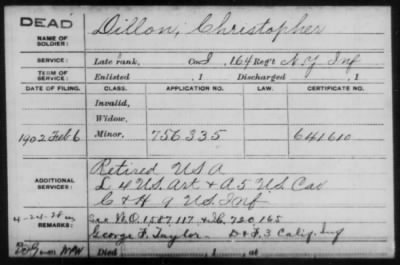 DEAD
NAME OF SOLDIER: Dillon, Christopher
SERVICE: Late rank, Co. I, 164 Reg't N.Y. Inf
TERM OF SERVICE: Enlisted , 1 Discharged , 1
DATE OF FILING. CLASS. APPLICATION NO. LAW. CERTIFICATE NO.
Invalid,
Widow,
1902 Feb 6 Minor, 756335 641610
Retired USA
ADDITIONAL SERVICES: L 4 U.S. Art + A 5 U.S. Cav
C + H 9 U.S. Inf
4-24-28
REMARKS: See W.O. 1587.117 + I.C. 720 165
George F. Taylor. D + F, 3 Calif. Inf
Died , 1 , at